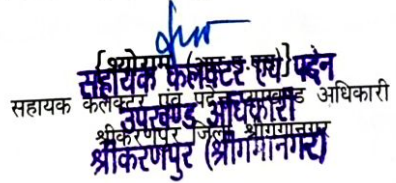 सहायक कलक्टर एवं पदेन
सहायक कलक्टर एवं पदेन उपखण्ड अधिकारी
उपखण्ड अधिकारी
श्रीकरणपुर जिला श्रीगंगानगर
श्रीकरणपुर (श्रीगंगानगर)